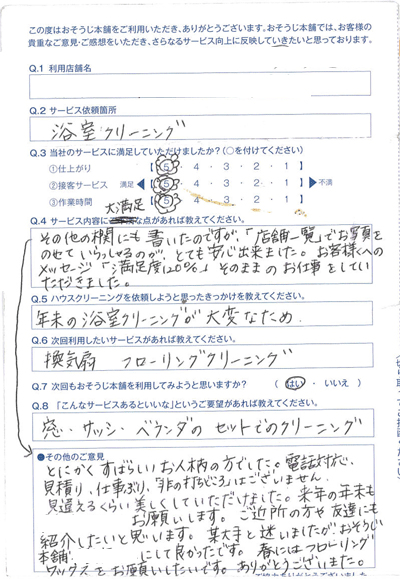 この度はおそうじ本舗をご利用いただき、ありがとうございます。おそうじ本舗では、お客様の
貴重なご意見・ご感想をいただき、さらなるサービス向上に反映していきたいと思っております。
Q.1 利用店舗名
Q.2 サービス依頼箇所
浴室クリーニング
Q.3 当社のサービスに満足していただけましたか?(○を付けてください)
①仕上がり 【 5 ・ 4 ・ 3 ・ 2 ・ 1 】
②接客サービス 満足 ◀【 5 ・ 4 ・ 3 ・ 2 ・ 1 】▶ 不満
③作業時間 【 5 ・ 4 ・ 3 ・ 2 ・ 1 】
大満足
Q.4 サービス内容に な点があれば教えてください。
その他の欄にも書いたのですが、「店舗一覧」でお写真を
のせていらっしゃるのが、とても安心出来ました。お客様への
メッセージ「満足度120%」そのままのお仕事をしてい
ただきました。
Q.5 ハウスクリーニングを依頼しようと思ったきっかけを教えてください。
年末の浴室クリーニングが大変なため
Q.6 次回利用したいサービスがあれば教えてください。
換気扇 フローリングクリーニング
Q.7 次回もおそうじ本舗を利用してみようと思いますか? ( はい ・ いいえ )
Q.8 「こんなサービスあるといいな」というご要望があれば教えてください。
窓・サッシ・ベランダのセットでのクリーニング
●その他のご意見
とにかくすばらしいお人柄の方でした。電話対応、
見積り、仕事ぶり、「非の打ちどころ」はございません。
見違えるくらい美しくしていただけました。来年の年末も
お願いします。ご近所の方や友達にも
紹介したいと思います。某大手と迷いましたがおそうじ
本舗 にして良かったです。春にはフローリング
ワックスをお願いしたいです。ありがとうございました。